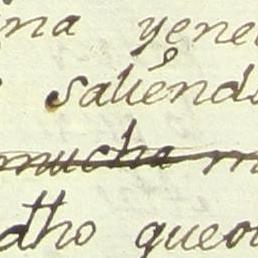 ina yene
saliend
mucha m
dho queo